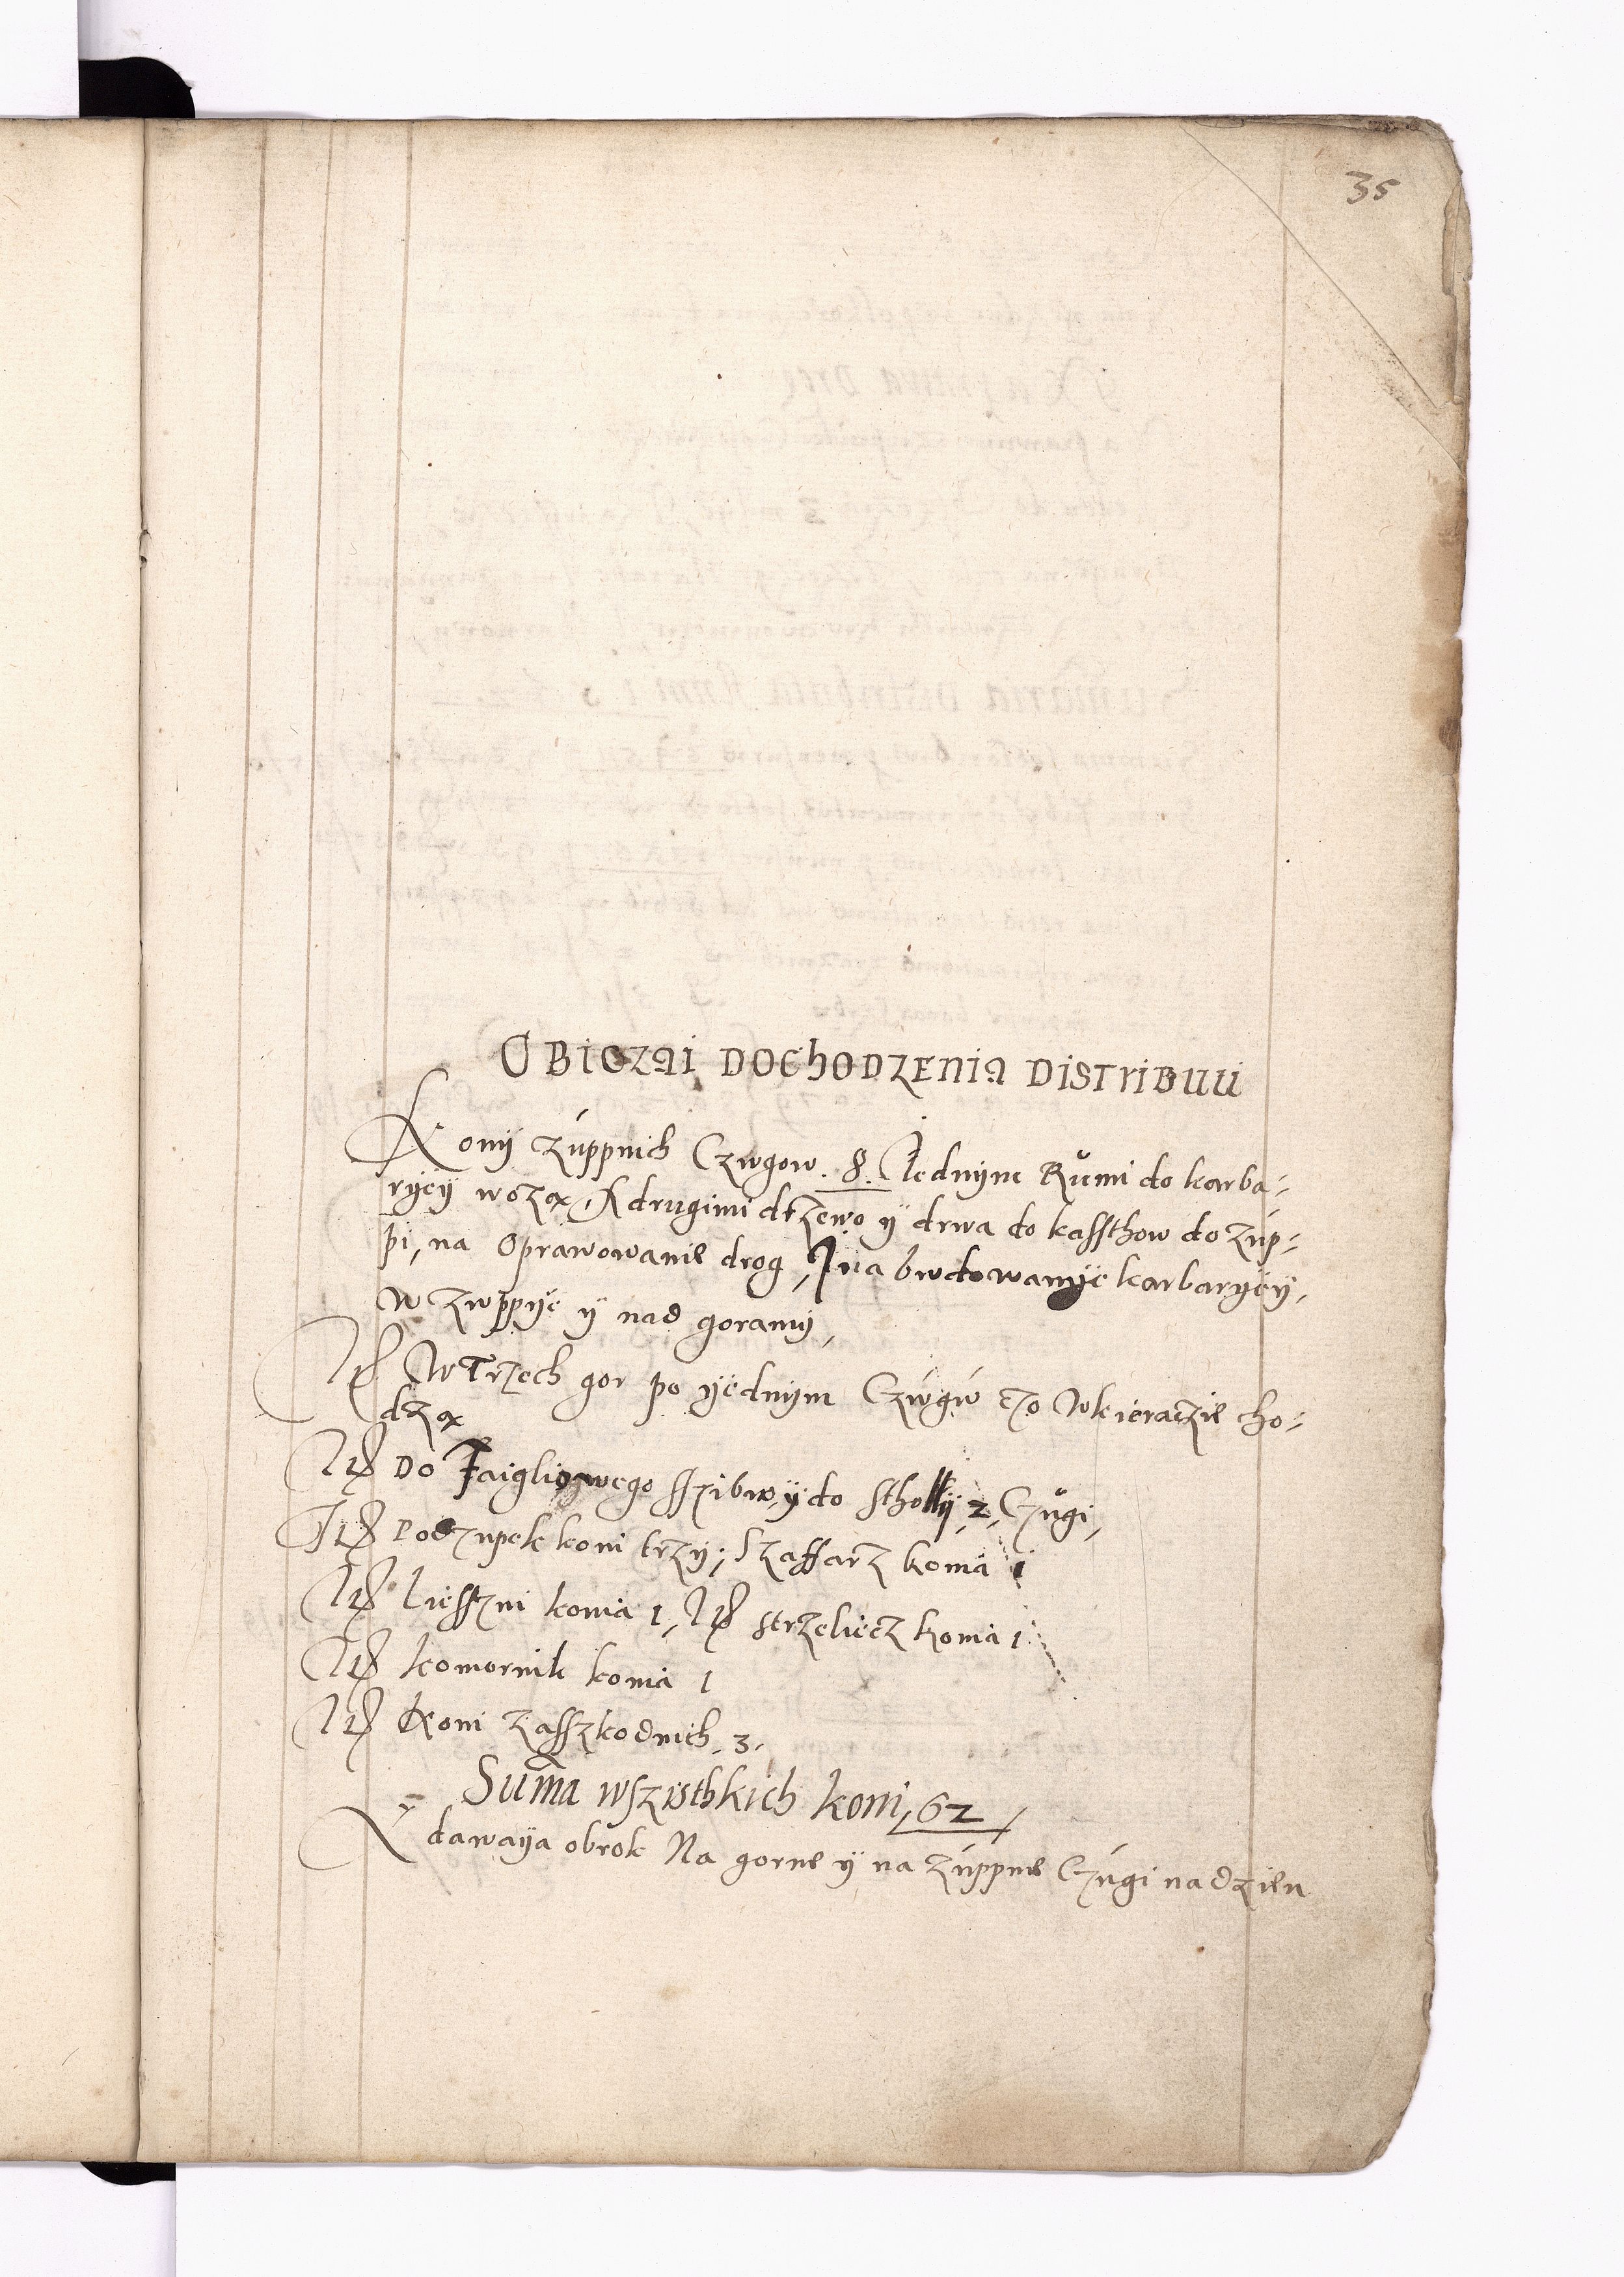 35
OBICZAI DOCHODZENIA DISTRIBUII
Kony zuppnich Czwgow . 8. Jednym Rumi do karba-
ryey wozą, A drugimi drzewo y drwa do kassthow do zup-
pi, na oprawowanie drog, Y na bwdowanye karbaryey,
w zwppye y nad goramy,
Itẽ W Trzech gor po yednym Czwgw czo w kieraczie cho-
dzą
Itẽ Do sszibw, y do stholly, 2, Czugi,
Itẽ Podzupek koni trzy; Szaffarz konia 1
Itẽ Liesszni konia 1, Itẽ strzeliecz konia 1
Itẽ komornik konia 1
Itẽ Koni zasszkodnich . 3.
Sum̃a wszisthkich koni, 62
dawaya obrok Na gorne y na zuppne Czugi na dzien